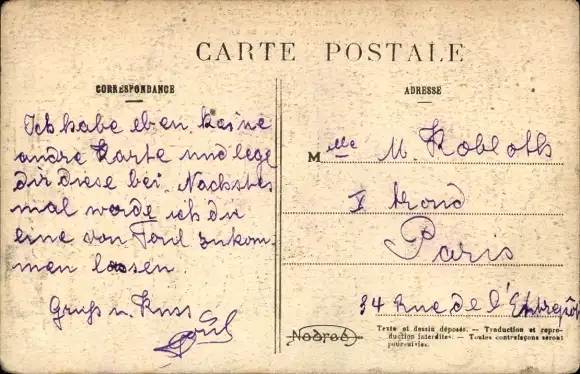 CARTE POSTALE
CORRESPONDANCE
Ich habe eben keine
andre Karte und lege
dir diese bei. Nächstes
mal werde ich dir
eine von Toul zukom-
men lassen.
Gruss u. Kuss
ADRESSE
Mlle M. Kobloth
X
Paris
34 Rue de l'Entrepôt
Texte et dessin déposés. — Traduction et repro-
duction interdites. — Toutes contrefaçons seront
poursuivies.